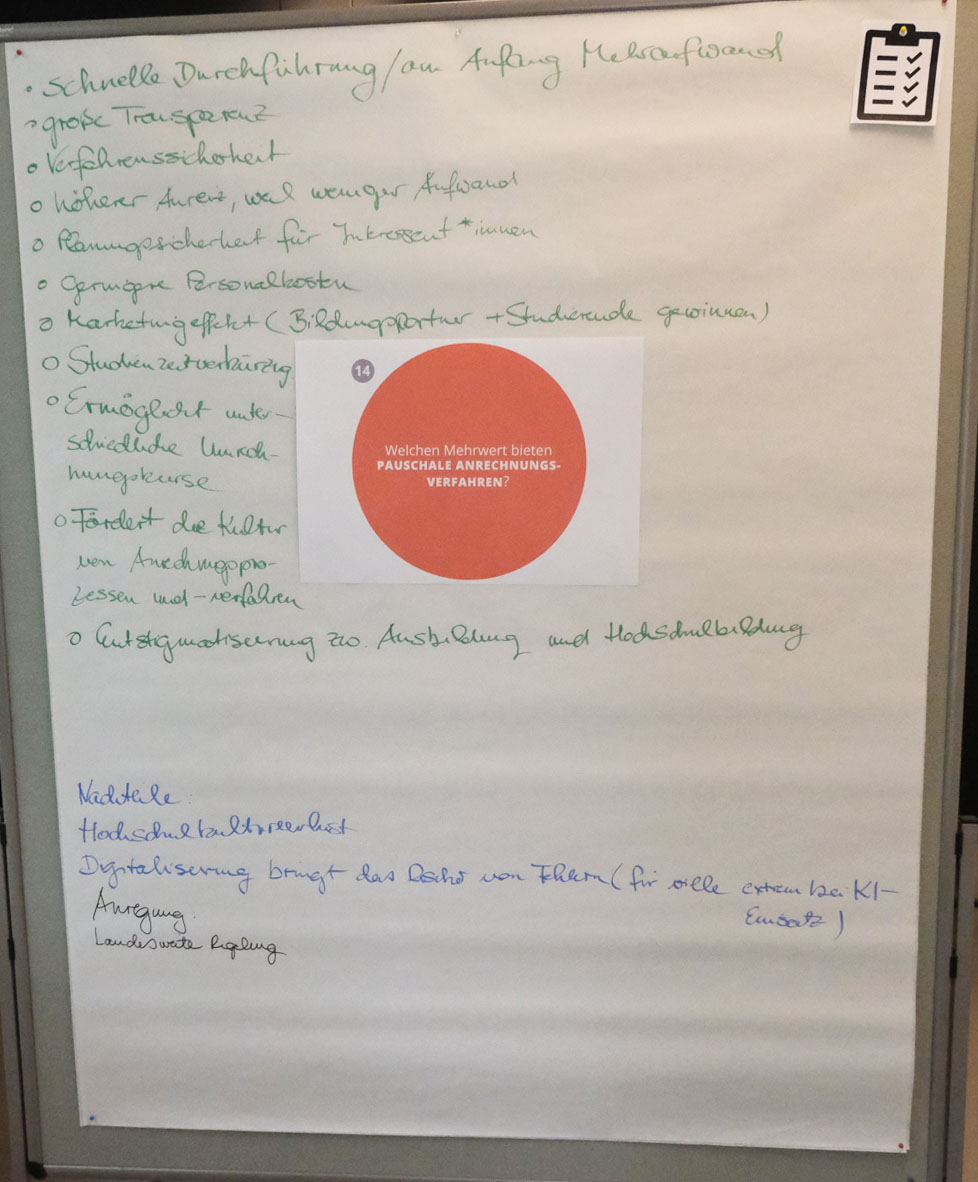 • Schnelle Durchführung/am Anfang Mehraufwand
große Transparenz
Verfahrenssicherheit
höherer Anreiz, weil weniger Aufwand
Planungssicherheit für Interessent*innen
Geringere Personalkosten
Marketingeffekt (Bildungspartner + Studierende gewinnen)
Studienzeitverkürzung
Ermöglicht unter-
schiedliche
Fördert die Kultur
von Anrechnungspro-
zessen und -verfahren
Entstigmatisierung zw. Ausbildung und Hochschulbildung
14
Welchen Mehrwert bieten
PAUSCHALE ANRECHNUNGS-
VERFAHREN?
Nachteile:
Hochschulkulturverlust
Digitalisierung bringt das von Fehlern (für viele extrem bei KI-
Einsatz)
Anregung:
Landesweite Regelung